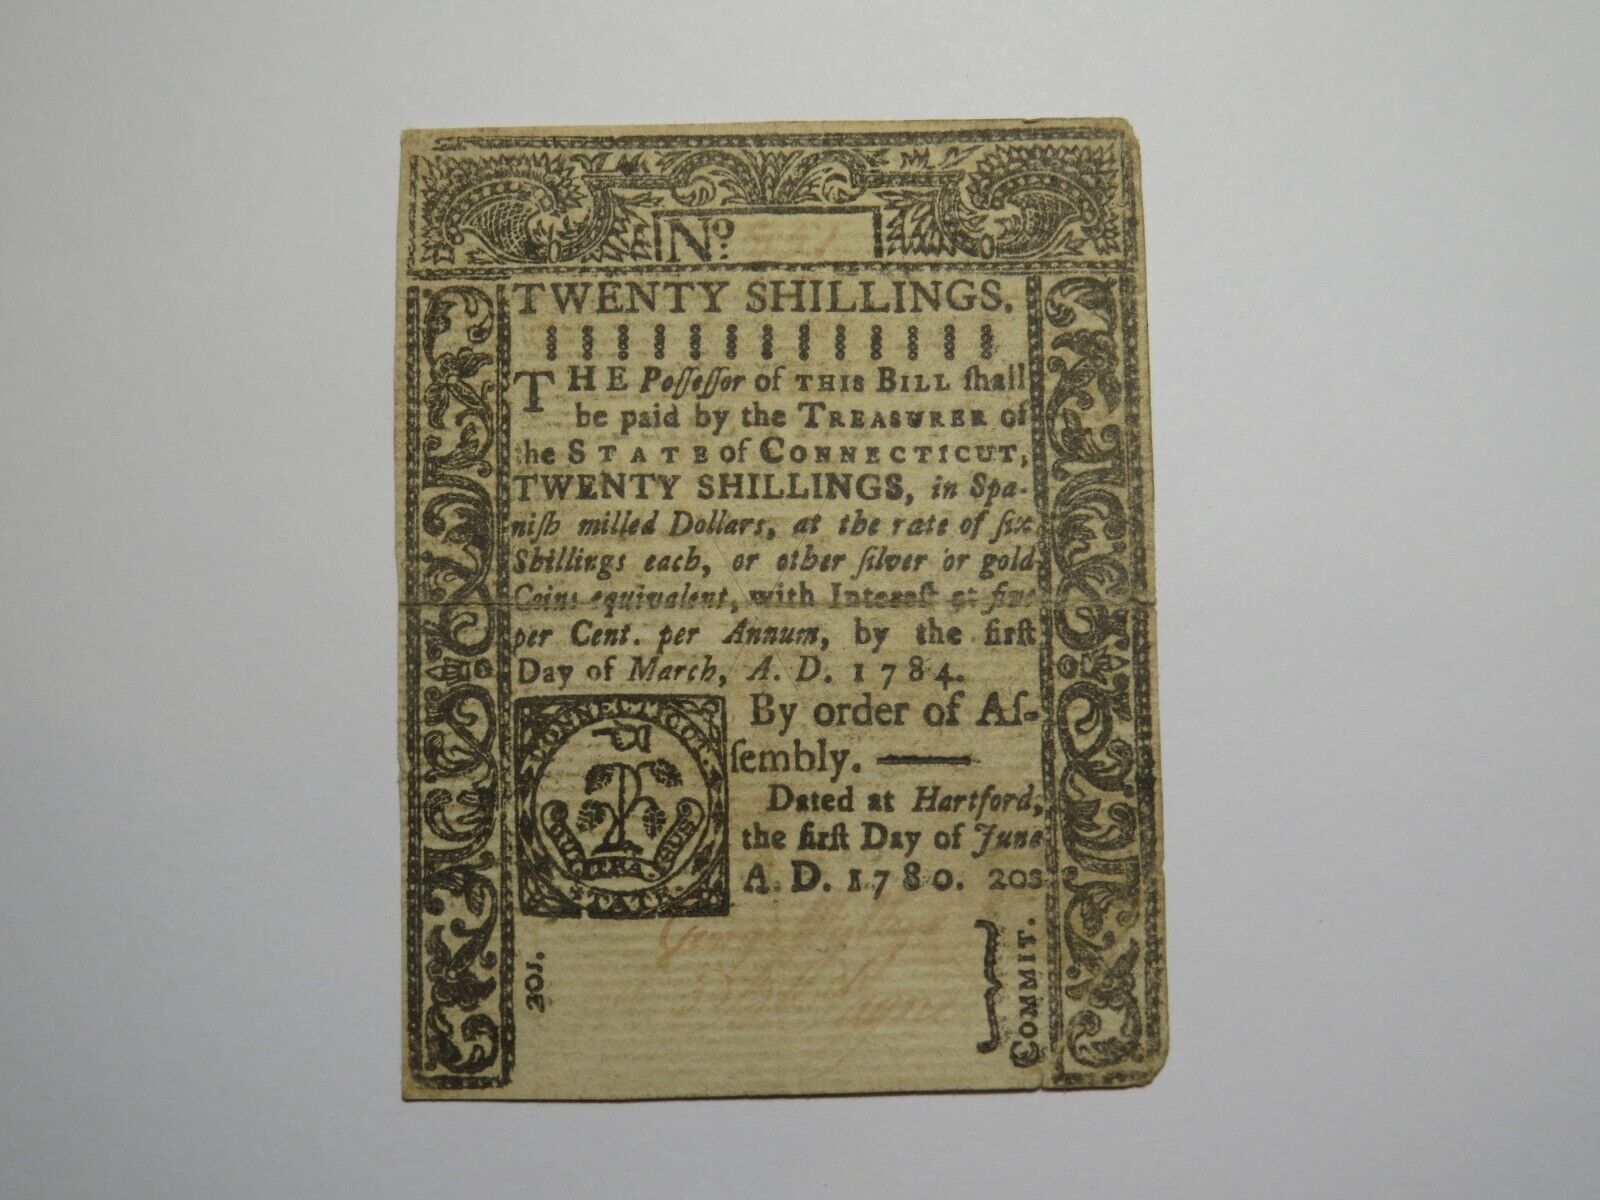 No.
TWENTY SHILLINGS.
THE Poſſeſſor of THIS BILL ſhall
be paid by the TREASURER of
the STATE of CONNECTICUT,
TWENTY SHILLINGS, in Spa-
niſh milled Dollars, at the rate of ſix
Shillings each, or other ſilver or gold
Coins equivalent, with Intereſt at five
per Cent. per Annum, by the firſt
Day of March, A. D. 1784.
By order of Aſ-
ſembly.
Dated at Hartford,
the firſt Day of June
A. D. 1780. 20s
CONNECTICUT.
QUI TRA. SUS
20s.
COMMIT.